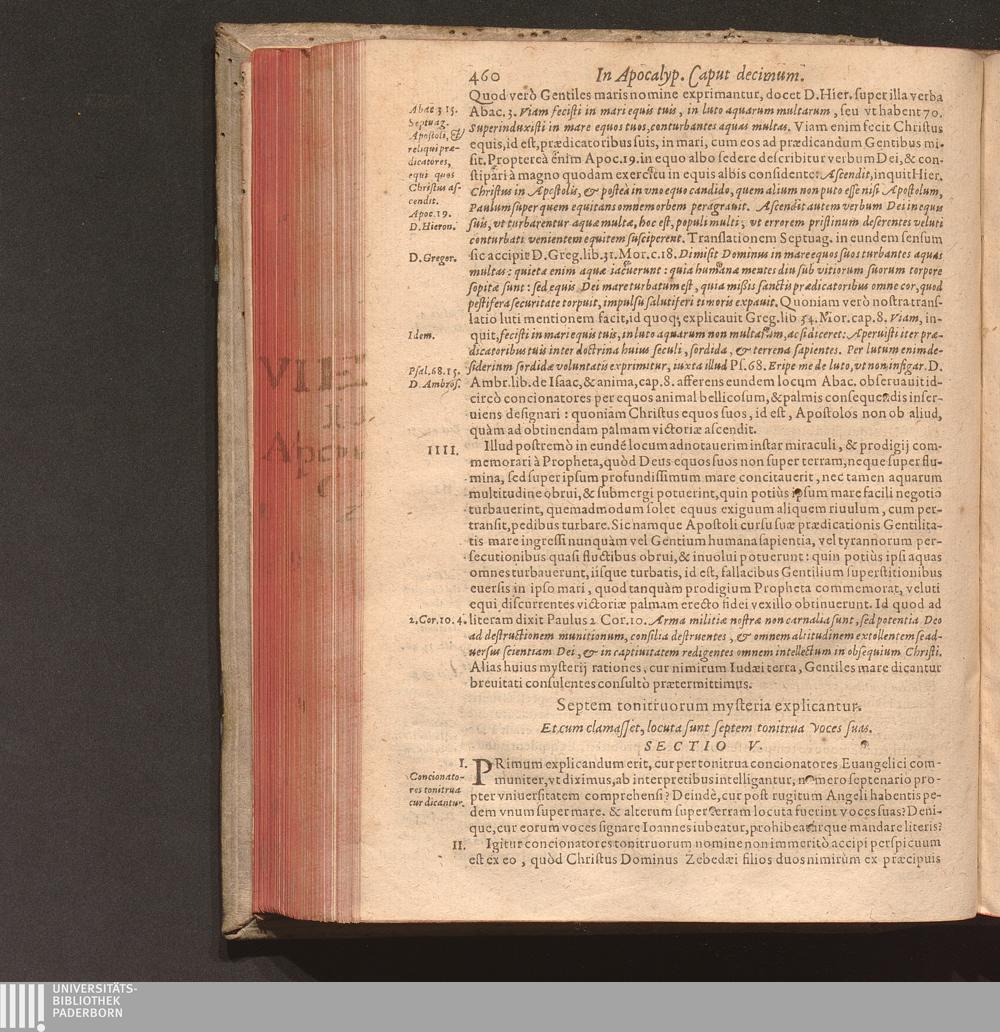 460 In Apocalyp. Caput decimum.
Quod verò Gentiles maris nomine exprimantur, docet D. Hier. super illa verba
Abac. 3. Viam fecisti in mari equis tuis, in luto aquarum multarum, seu vt habent 70.
Superinduxisti in mare equos tuos, conturbantes aquas multas. Viam enim fecit Christus
equis, id est, prædicatoribus suis, in mari, cum eos ad prædicandum Gentibus mi-
sit. Propterea enim Apoc. 19. in equo albo sedere describitur verbum Dei, & con-
stipari à magno quodam exercitu in equis albis considente: Ascendit, inquit Hier.
Christus in Apostolis, & postea in vno equo candido, quem alium non puto esse nisi Apostolum,
Paulum super quem equitans omnem orbem peragrauit. Ascendit autem verbum Dei in equis
suis, vt turbarentur aquæ multæ, hoc est, populi multi, vt errorem pristinum deserentes veluti
conturbati venientem equitem susciperent. Translationem Septuag. in eundem sensum
sic accipit D. Greg. lib. 31. Mor. c. 18. Dimisit Dominus in mare equos suos turbantes aquas
multas: quietæ enim aquæ iacuerunt: quia humanæ mentes diu sub vitiorum suorum torpore
sopitæ sunt: sed equis Dei mare turbatum est, quia mißis sanctis prædicatoribus omne cor, quod
pestifera securitate torpuit, impulsu salutiferi timoris expauit. Quoniam verò nostra trans-
latio luti mentionem facit, id quoq; explicauit Greg. lib 34. Mor. cap. 8. Viam, in-
quit, fecisti in mari equis tuis, in luto aquarum non multarum, ac si diceret: Aperuisti iter præ-
dicatoribus tuis inter doctrina huius seculi, sordida, & terrena sapientes. Per lutum enim de-
siderium sordidæ voluntatis exprimitur, iuxta illud Ps. 68. Eripe me de luto, vt non infigar. D.
Ambr. lib. de Isaac, & anima, cap. 8. afferens eundem locum Abac. obseruauit id-
circò concionatores per equos animal bellicosum, & palmis consequendis inser-
uiens designari: quoniam Christus equos suos, id est, Apostolos non ob aliud,
quàm ad obtinendam palmam victoriæ ascendit.
Illud postremò in eundé locum adnotauerim instar miraculi, & prodigij com-
memorari à Propheta, quòd Deus equos suos non super terram, neque super flu-
mina, sed super ipsum profundissimum mare concitauerit, nec tamen aquarum
multitudine obrui, & submergi potuerint, quin potiùs ipsum mare facili negotio
turbauerint, quemadmodum solet equus exiguum aliquem riuulum, cum per-
transit, pedibus turbare. Sic namque Apostoli cursu suæ prædicationis Gentilita-
tis mare ingressi nunquàm vel Gentium humana sapientia, vel tyrannorum per-
secutionibus quasi fluctibus obrui, & inuolui potuerunt: quin potiùs ipsi aquas
omnes turbauerunt, iisque turbatis, id est, fallacibus Gentilium superstitionibus
euersis in ipso mari, quod tanquàm prodigium Propheta commemorat, veluti
equi discurrentes victoriæ palmam erecto fidei vexillo obtinuerunt. Id quod ad
literam dixit Paulus 2 Cor. 10. Arma militiæ nostræ non carnalia sunt, sed potentia Deo
ad destructionem munitionum, consilia destruentes, & omnem altitudinem extollentem se ad-
uersus scientiam Dei, & in captiuitatem redigentes omnem intellectum in obsequium Christi.
Alias huius mysterij rationes, cur nimirum Iudæi terra, Gentiles mare dicantur
breuitati consulentes consultò prætermittimus.
Septem tonitruorum mysteria explicantur.
Et cum clamasset, locuta sunt septem tonitrua voces suas.
SECTIO V.
PRimum explicandum erit, cur per tonitrua concionatores Euangelici com-
muniter, vt diximus, ab interpretibus intelligantur, numero septenario pro-
pter vniuersitatem comprehensi? Deindè, cur post rugitum Angeli habentis pe-
dem vnum super mare, & alterum super terram locuta fuerint voces suas? Deni-
que, cur eorum voces signare Ioannes iubeatur, prohibeaturque mandare literis?
Igitur concionatores tonitruorum nomine non immeritò accipi perspicuum
est ex eo, quòd Christus Dominus Zebedæi filios duos nimirùm ex præcipuis
Abac 3 15.
Septuag.
Apostoli, &
reliqui præ-
dicatores,
equi quos
Christus as-
cendit.
Apoc. 19.
D. Hieron.
D. Gregor.
Idem.
Psal. 68. 15.
D. Ambros.
IIII.
2. Cor. 10. 4.
I.
Concionato-
res tonitrua
cur dicantur.
II.
UNIVERSITÄTS-
BIBLIOTHEK
PADERBORN